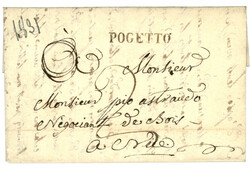 1831
POGETTO
à
Monsieur
Monsieur pio astraudo
Négociant de Bois
a Nice